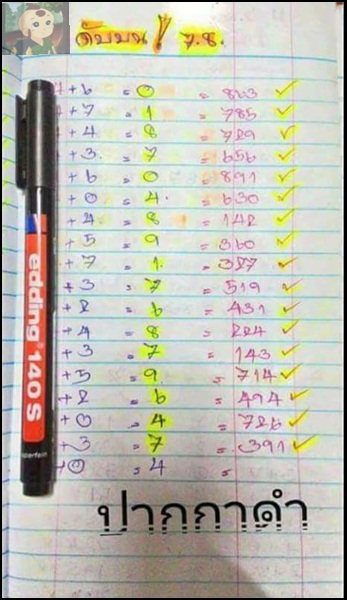 ดับบน 7.8.
4+6 = 0 = 863 ✓
+7 = 1 = 785 ✓
+4 = 8 = 729 ✓
+3 = 7 = 656 ✓
+6 = 0 = 891 ✓
+0 = 4. = 630 ✓
+4 = 8 = 142 ✓
+5 = 9 = 360 ✓
+7 = 1. = 327 ✓
+3 = 7 = 519 ✓
+2 = 6 = 431 ✓
+4 = 8 = 224 ✓
+3 = 7 = 143 ✓
+5 = 9. = 714 ✓
+2 = 6 = 494 ✓
+0 = 4 = 726 ✓
+3 = 7 = 391 ✓
+0 = 4 =
edding 140 S
ปากกาดำ